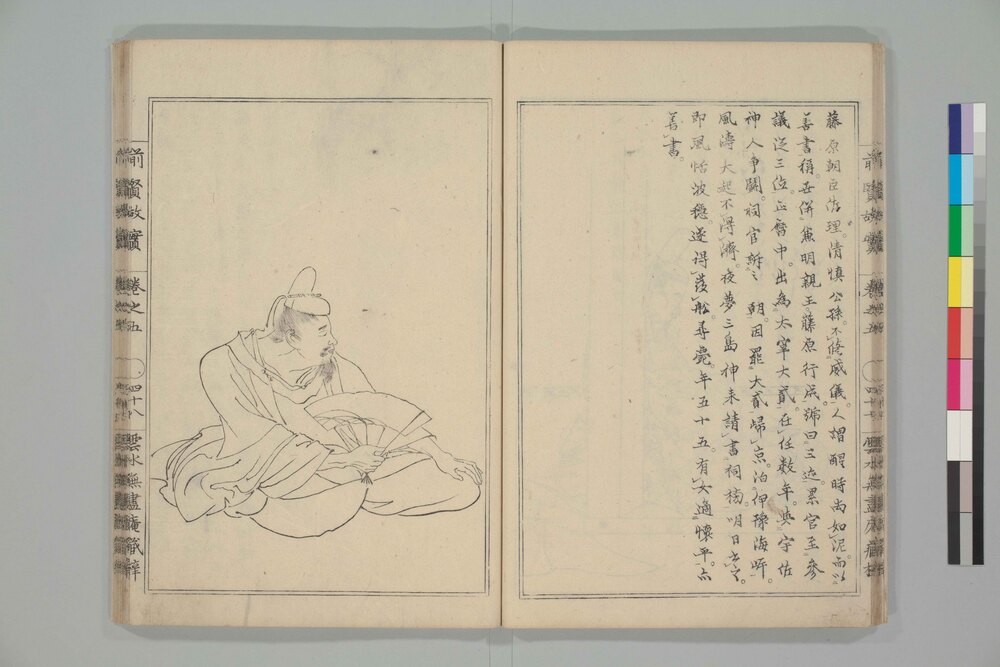 藤原朝臣佐理。清慎公孫。不修威儀。人謂醒時尚如泥。而以
善書稱。世併兼明親王藤原行成。號曰三迹。累官至參
議從三位。正曆中。出為太宰大貳。在任數年。與宇佐
神人爭鬪。祠官訴之 朝。因罷大貳歸京。泊伊豫海畔。
風濤大起不得濟。夜夢三島神来請書祠榜。明日書之。
即風恬波穩。遂得發船尋薨。年五十五。有女適懷平。亦
善書。
前賢故實
卷之五
四十八
雲水無盡庵藏梓
前賢故實
卷之五
四十七
雲水無盡庵藏梓